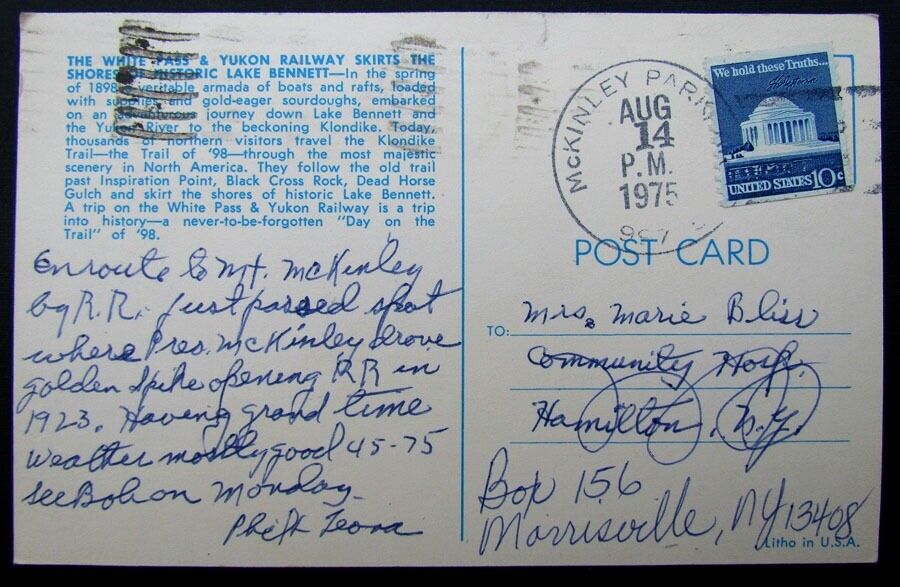 THE WHITE PASS & YUKON RAILWAY SKIRTS THE
SHORES OF HISTORIC LAKE BENNETT—In the spring
of 1898 a veritable armada of boats and rafts, loaded
with supplies and gold-eager sourdoughs, embarked
on an journey down Lake Bennett and
the Yukon River to the beckoning Klondike. Today,
thousands of northern visitors travel the Klondike
Trail—the Trail of '98—through the most majestic
scenery in North America. They follow the old trail
past Inspiration Point, Black Cross Rock, Dead Horse
Gulch and skirt the shores of historic Lake Bennett.
A trip on the White Pass & Yukon Railway is a trip
into history—a never-to-be-forgotten "Day on the
Trail" of '98.
Enroute to Mt. McKinley
by R.R. Just passed spot
where Pres. McKinley drove
golden spike opening RR in
1923. Having grand time
weather mostly good 45-75
see Bob on Monday.
Phil & Leona
McKINLEY PARK
AUG
14
P.M.
1975
997
We hold these Truths...
UNITED STATES 10c
POST CARD
TO:
Mrs. Marie Bliss
Community Hosp.
Hamilton, N.Y.
Box 156
Morrisville, NY 13408
Litho in U.S.A.